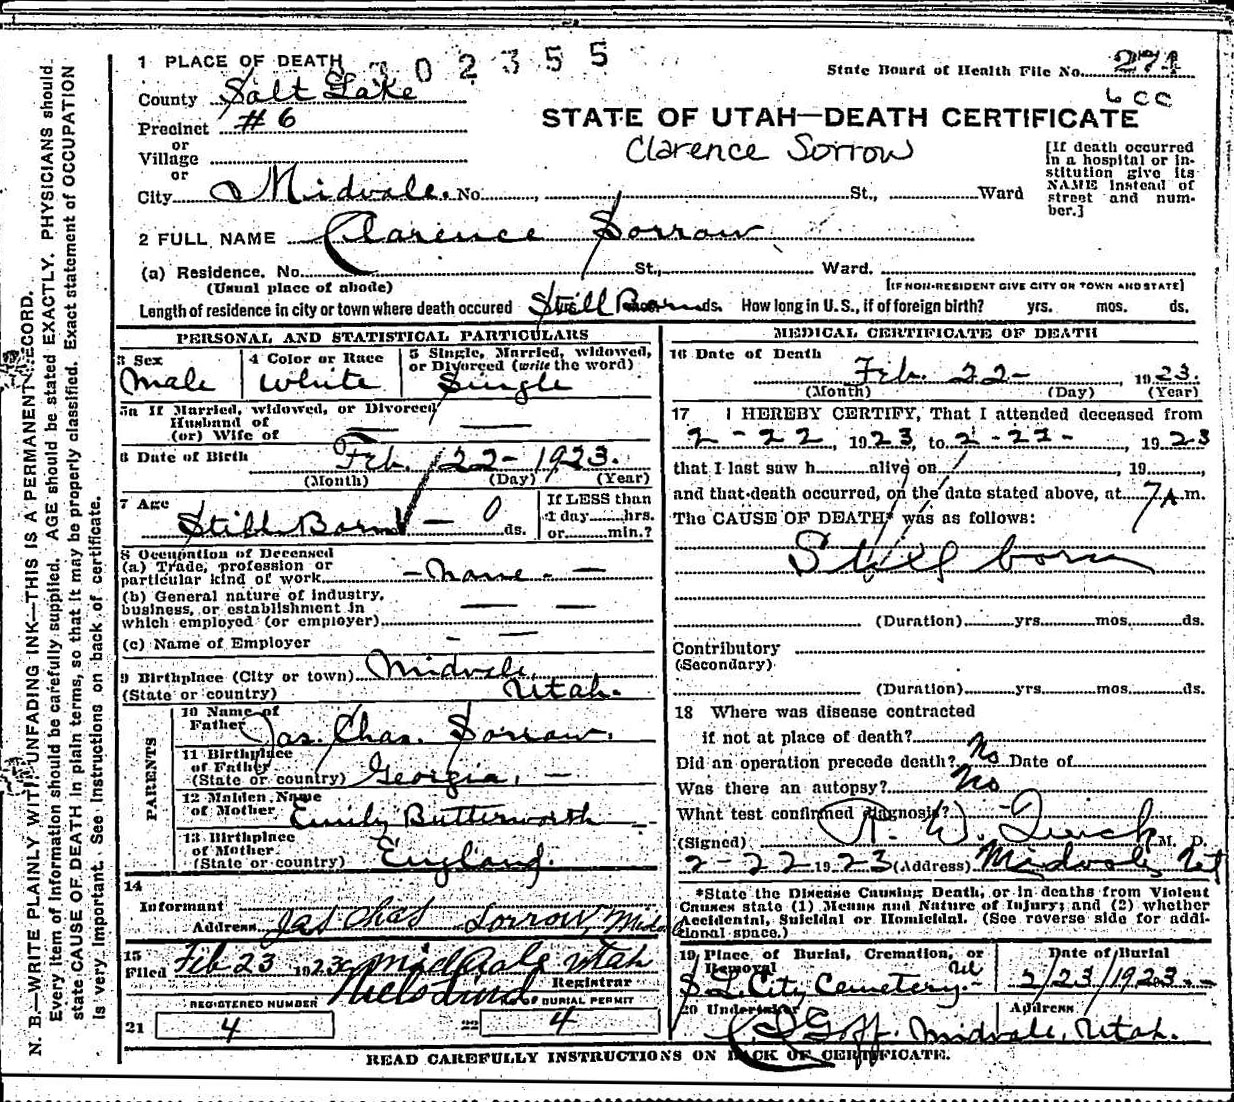 1 PLACE OF DEATH 302355
State Board of Health File No. 271
County Salt Lake
6 CC
Precinct #6
STATE OF UTAH—DEATH CERTIFICATE
or
Village
Clarence Sorrow
or
City Midvale. No. , St., Ward
[If death occurred
in a hospital or in-
stitution give its
NAME instead of
street and num-
ber.]
2 FULL NAME Clarence Sorrow
(a) Residence. No. St., Ward.
(Usual place of abode)
[IF NON-RESIDENT GIVE CITY OR TOWN AND STATE]
Length of residence in city or town where death occured Still Born ds. How long in U.S., if of foreign birth? yrs. mos. ds.
PERSONAL AND STATISTICAL PARTICULARS
3 Sex
Male
4 Color or Race
White
5 Single, Married, widowed,
or Divorced (write the word)
Single
5a If Married, widowed, or Divorced
Husband of
(or) Wife of
6 Date of Birth Feb. 22- 1923.
(Month) (Day) (Year)
7 Age
Still Born — 0 ds.
If LESS than
1 day hrs.
or min.?
8 Occupation of Deceased
(a) Trade, profession or
particular kind of work - None. -
(b) General nature of industry,
business, or establishment in
which employed (or employer)
(c) Name of Employer
9 Birthplace (City or town) Midvale,
(State or country) Utah.
PARENTS
10 Name of
Father Jas. Chas. Sorrow.
11 Birthplace
of Father
(State or country) Georgia, —
12 Maiden Name
of Mother Emily Butterworth
13 Birthplace
of Mother.
(State or country) England.
14
Informant
Address Jas Chas Sorrow, Midvale
15
Filed Feb 23 1923 Midvale Utah
Registrar
REGISTERED NUMBER
BURIAL PERMIT
21 4
22 4
MEDICAL CERTIFICATE OF DEATH
16 Date of Death
Feb. 22- , 1923.
(Month) (Day) (Year)
17 I HEREBY CERTIFY, That I attended deceased from
2-22, 1923, to 2-22-, 1923
that I last saw h alive on , 19 ,
and that death occurred, on the date stated above, at 7 A m.
The CAUSE OF DEATH* was as follows:
Still born
(Duration) yrs. mos. ds.
Contributory
(Secondary)
(Duration) yrs. mos. ds.
18 Where was disease contracted
if not at place of death?
Did an operation precede death? No Date of
Was there an autopsy? No
What test confirmed diagnosis?
(Signed) W. M. D.
2-22 1923 (Address) Midvale Ut
*State the Disease Causing Death, or in deaths from Violent
Causes state (1) Means and Nature of Injury; and (2) whether
Accidental, Suicidal or Homicidal. (See reverse side for addi-
tional space.)
19 Place of Burial, Cremation, or
Removal
S L City Cemetery. Ut
Date of Burial
2/23/1923
20 Undertaker
Goff.
Address
Midvale, Utah.
READ CAREFULLY INSTRUCTIONS ON BACK OF CERTIFICATE.
N. B.—WRITE PLAINLY WITH UNFADING INK—THIS IS A PERMANENT RECORD.
Every item of information should be carefully supplied. AGE should be stated EXACTLY. PHYSICIANS should
state CAUSE OF DEATH in plain terms, so that it may be properly classified. Exact statement of OCCUPATION
is very important. See instructions on back of certificate.